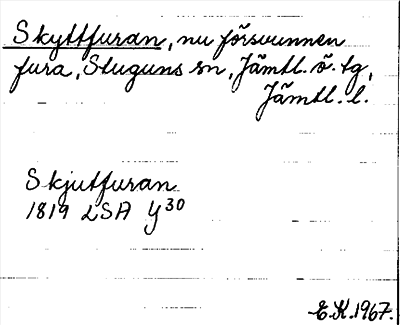 Skyttfuran, nu försvunnen
fura, Stuguns sn, Jämtl. ö. tg,
Jämtl. l.
Skjutfuran
1819 LSA Y30
E.K. 1967.